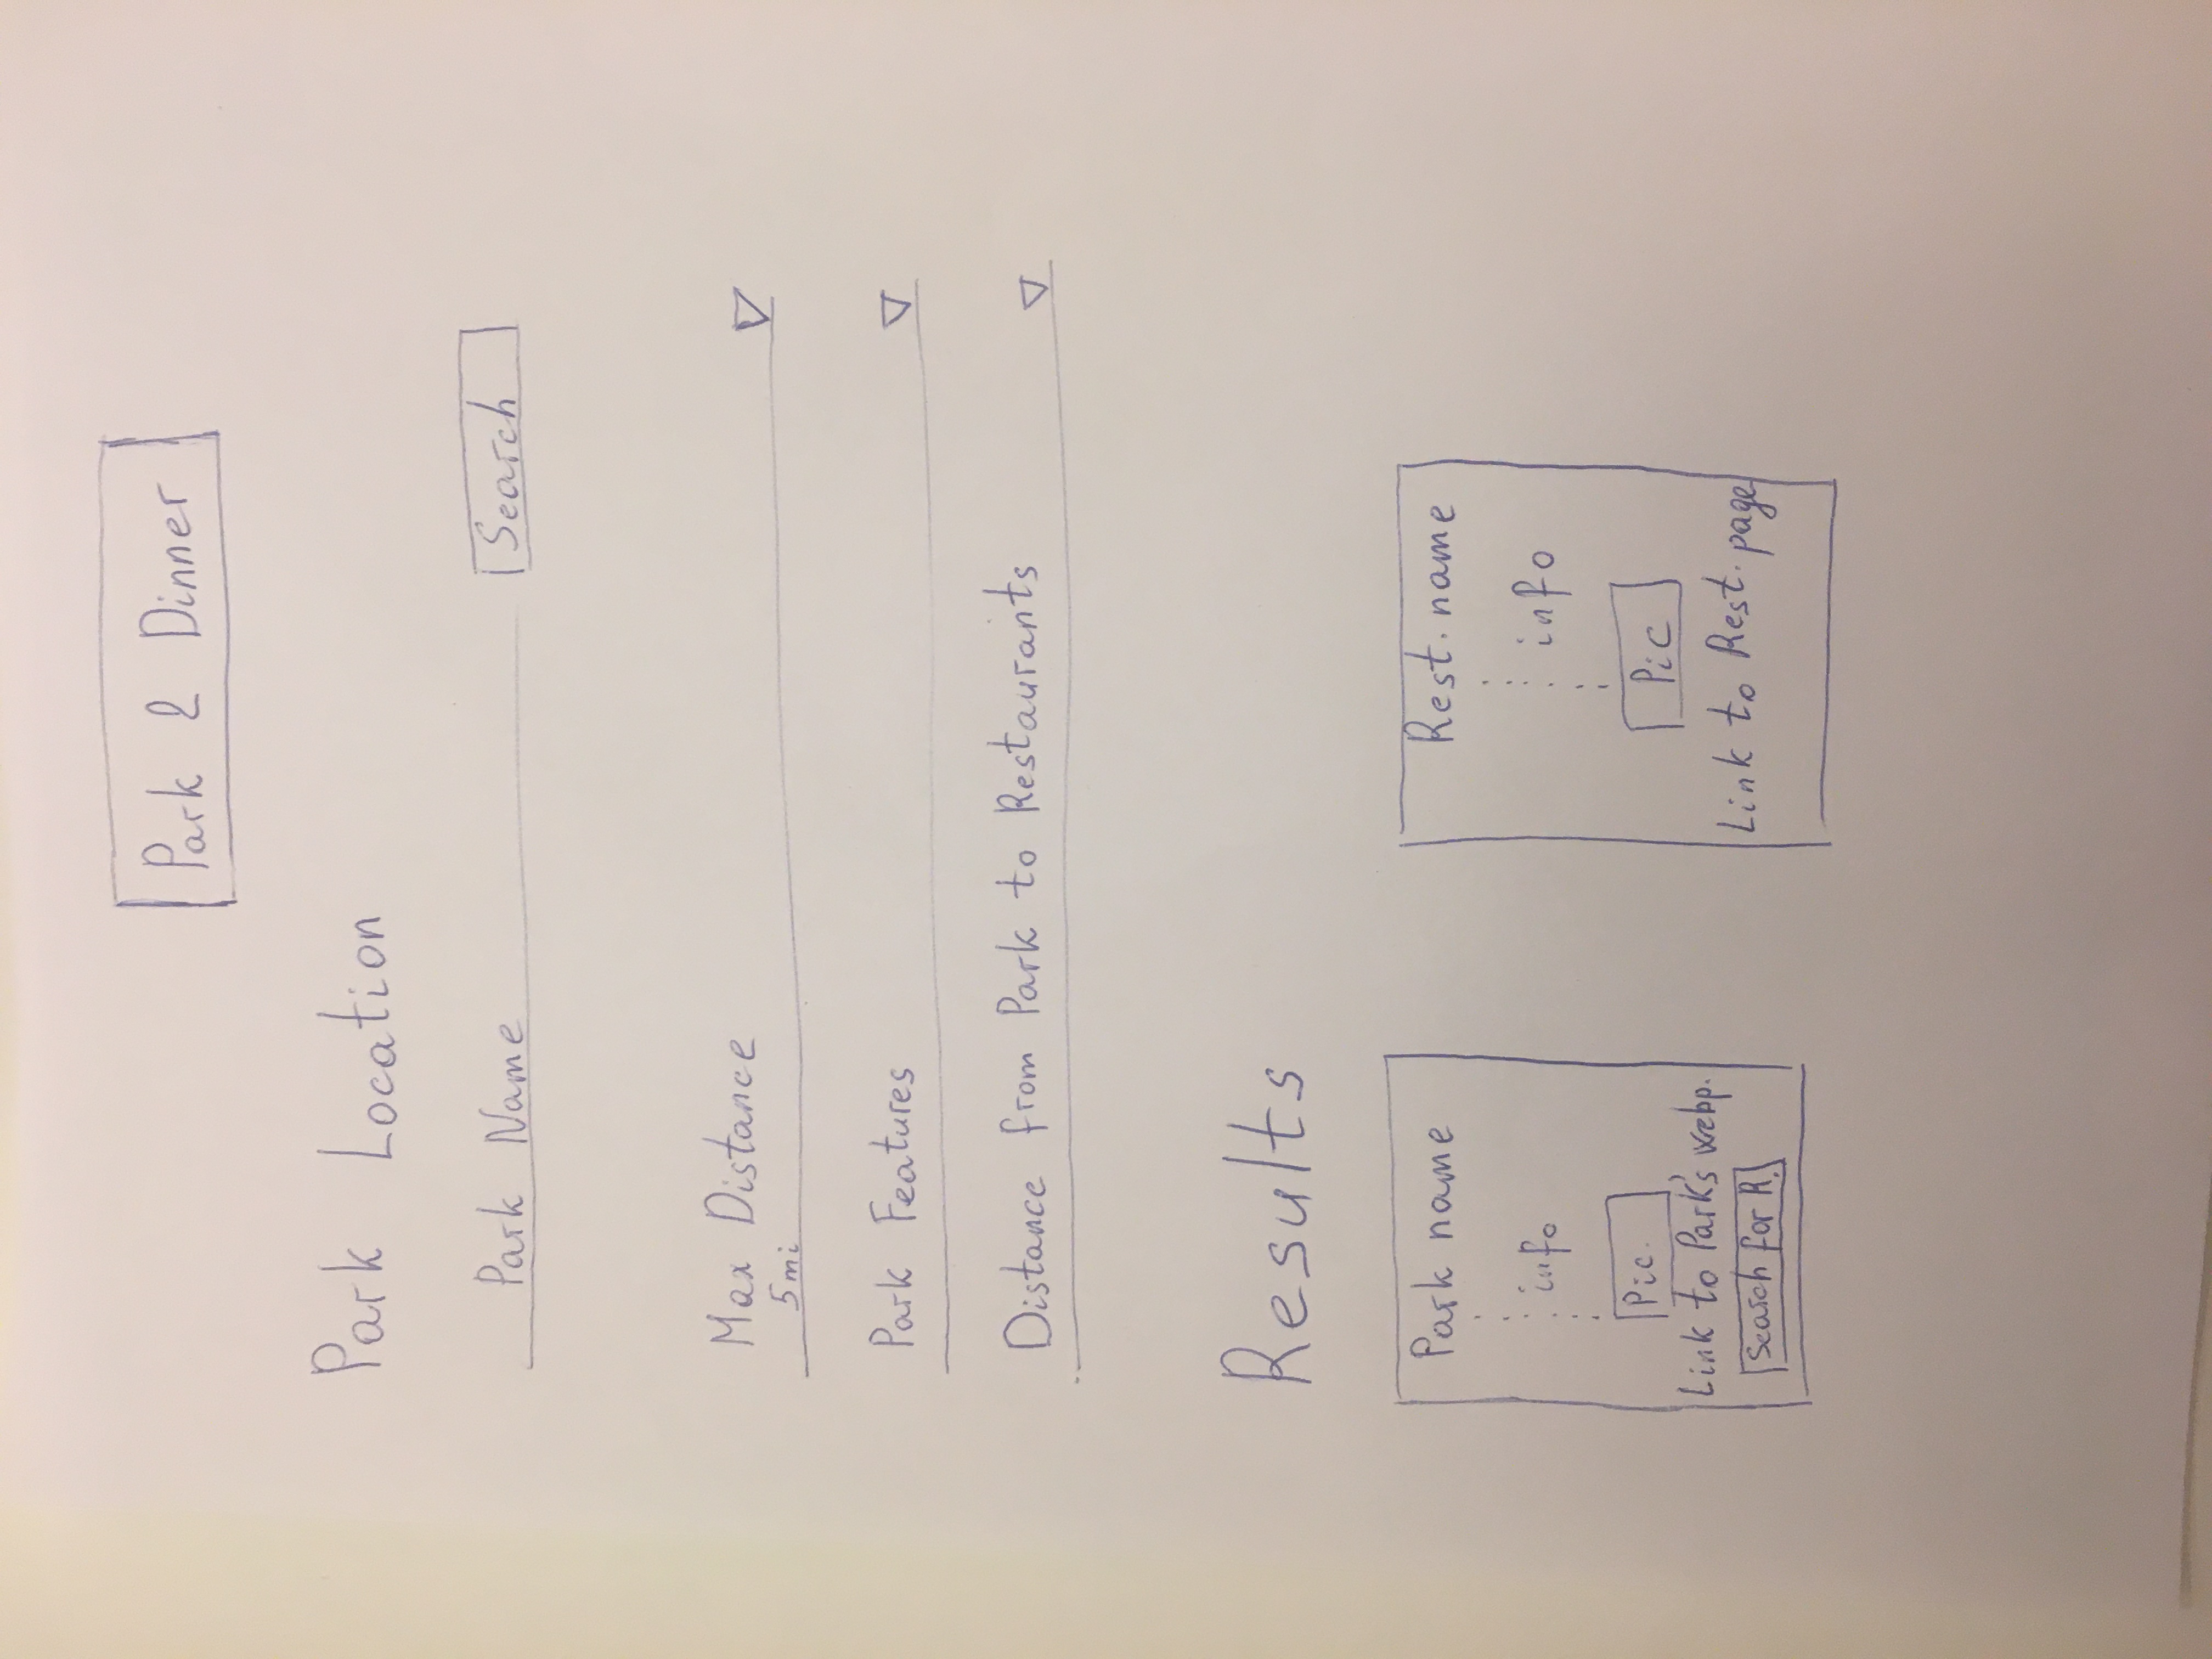 Park & Dinner
Park Location
Park Name
Search
Max Distance
5mi
Park Features
Distance from Park to Restaurants
Results
Park name
info
Pic.
Link to Park's webp.
Search for R.
Rest. name
info
Pic
Link to Rest. page